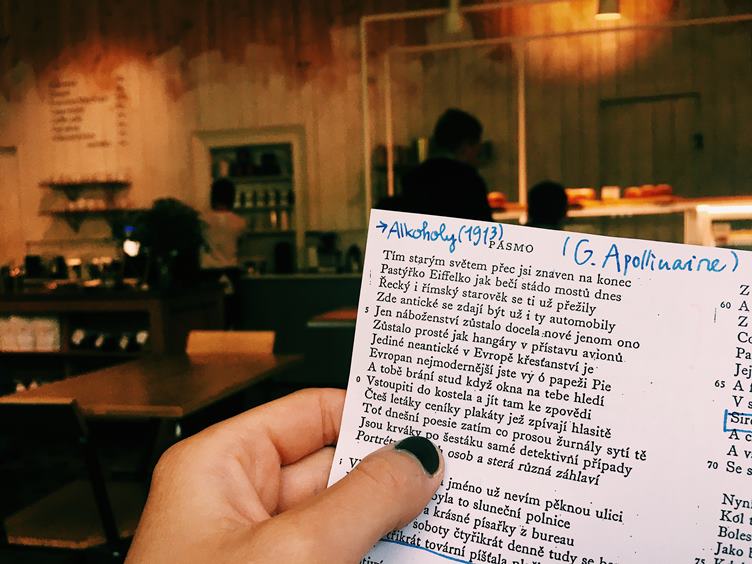 →Alkoholy (1913)
PÁSMO
(G. Apollinaire)
Tím starým světem přec jsi znaven na konec
Pastýřko Eiffelko jak bečí stádo mostů dnes
Řecký i římský starověk se ti už přežily
Zde antické se zdají být už i ty automobily
5 Jen náboženství zůstalo docela nové jenom ono
Zůstalo prosté jak hangáry v přístavu avionů
Jediné neantické v Evropě křesťanství je
Evropan nejmodernější jste vy ó papeži Pie
A tobě brání stud když okna na tebe hledí
0 Vstoupiti do kostela a jít tam ke zpovědi
Čteš letáky ceníky plakáty jež zpívají hlasitě
Toť dnešní poesie zatím co prosou žurnály sytí tě
Jsou krváky po šestáku samé detektivní případy
Portréty osob a sterá různá záhlaví
jméno už nevím pěknou ulici
byla to sluneční polnice
a krásné písařky z bureau
soboty čtyřikrát denně tudy se
tovární píšťala
Z
60 A
Z
Co
Pa
Jej
65 A
V s
A c
A v
70 Se s
Nyn
Kol
Boles
Jako
75